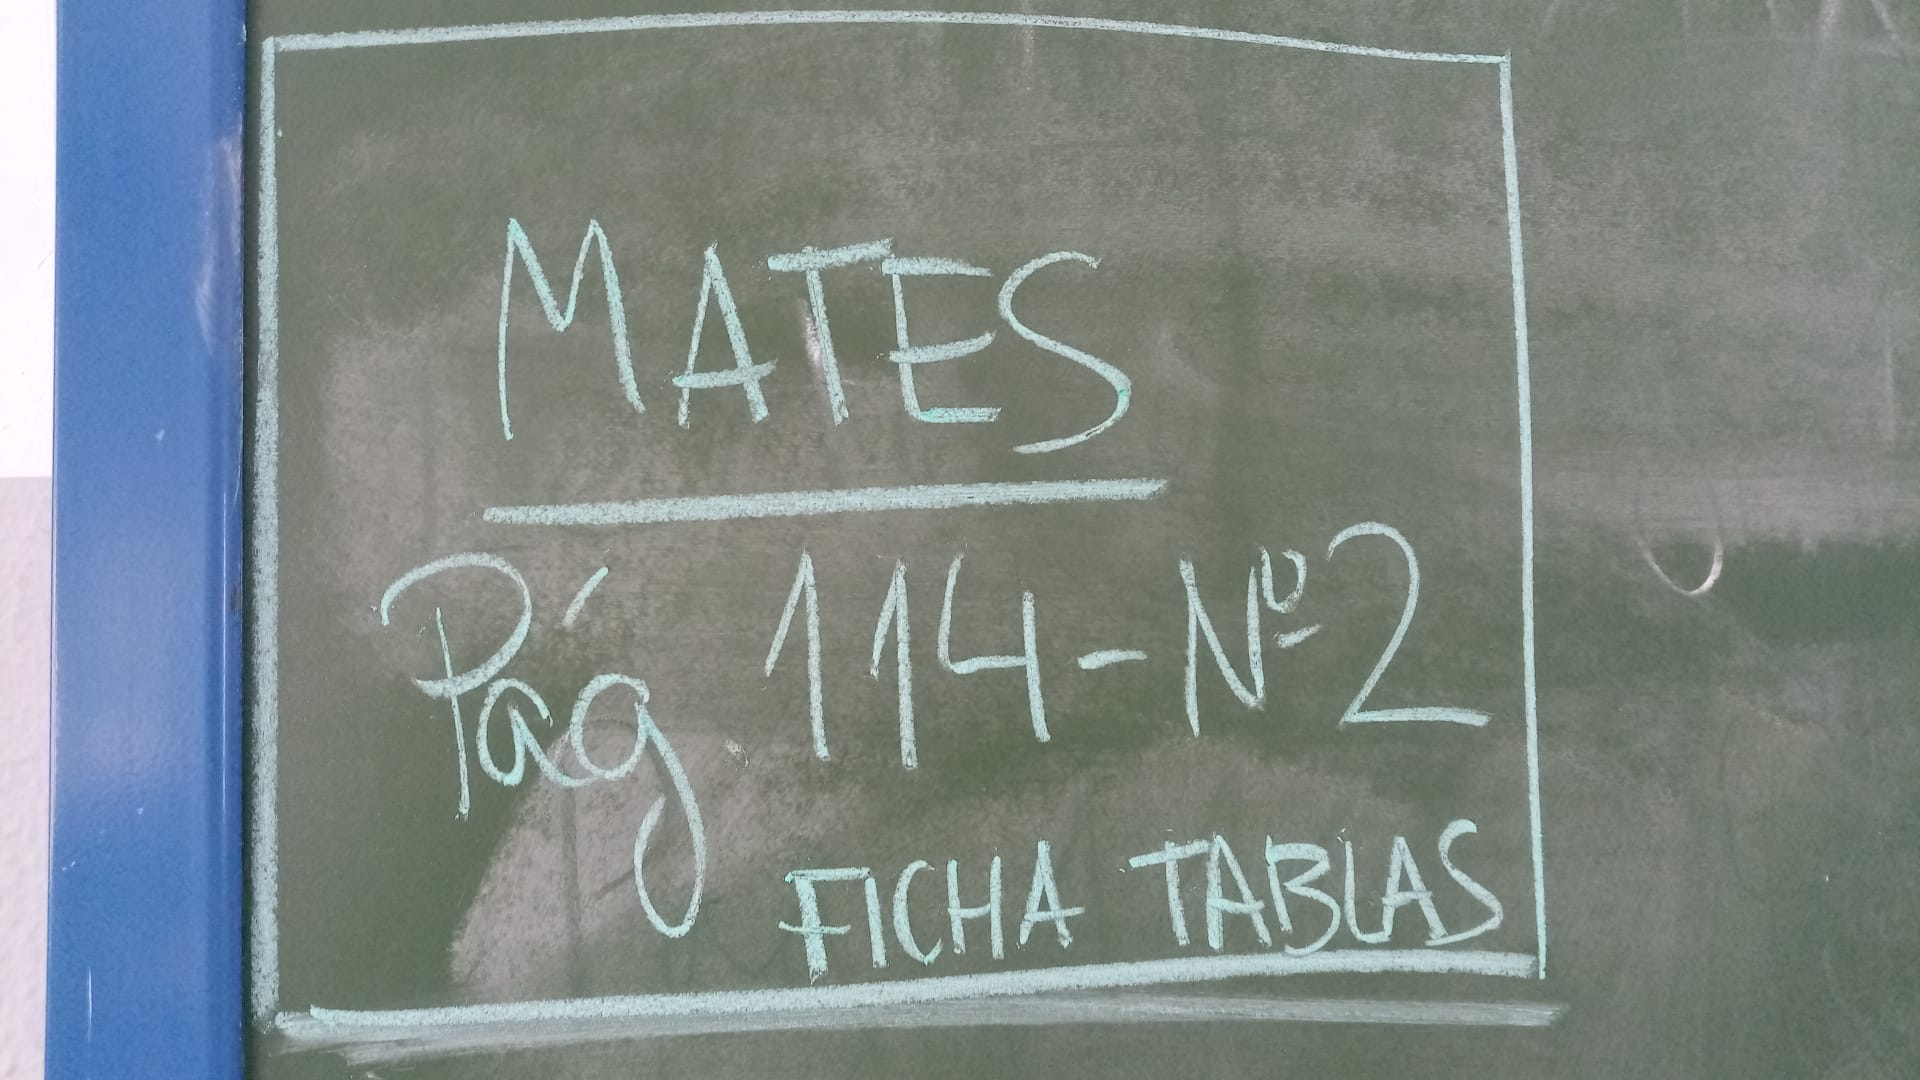 MATES
Pág. 114-Nº2
FICHA TABLAS